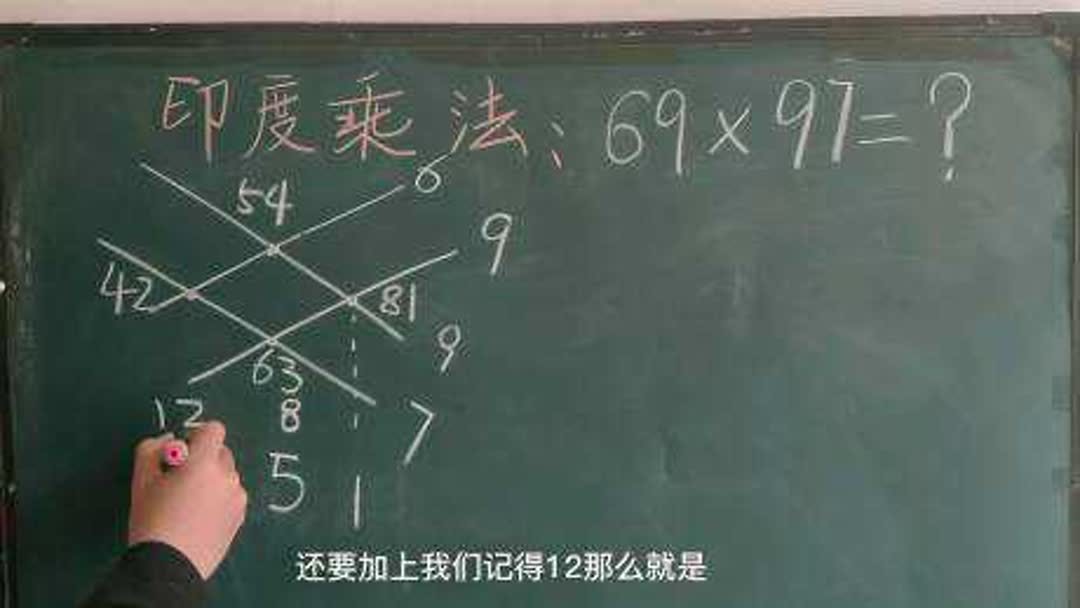 印度乘法:69×97=?
54
6
9
42
81
9
63
12
8
7
5
1
还要加上我们记得12那么就是